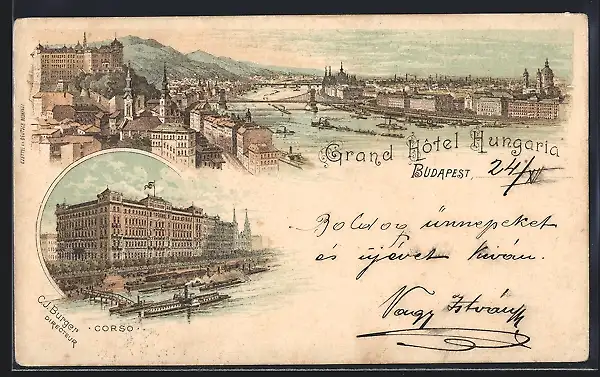 Grand Hôtel Hungaria
BUDAPEST, 24/XII
Boldog ünnepeket
és újévet kíván.
Nagy István
C.J. Burger
DIRECTEUR
· CORSO ·